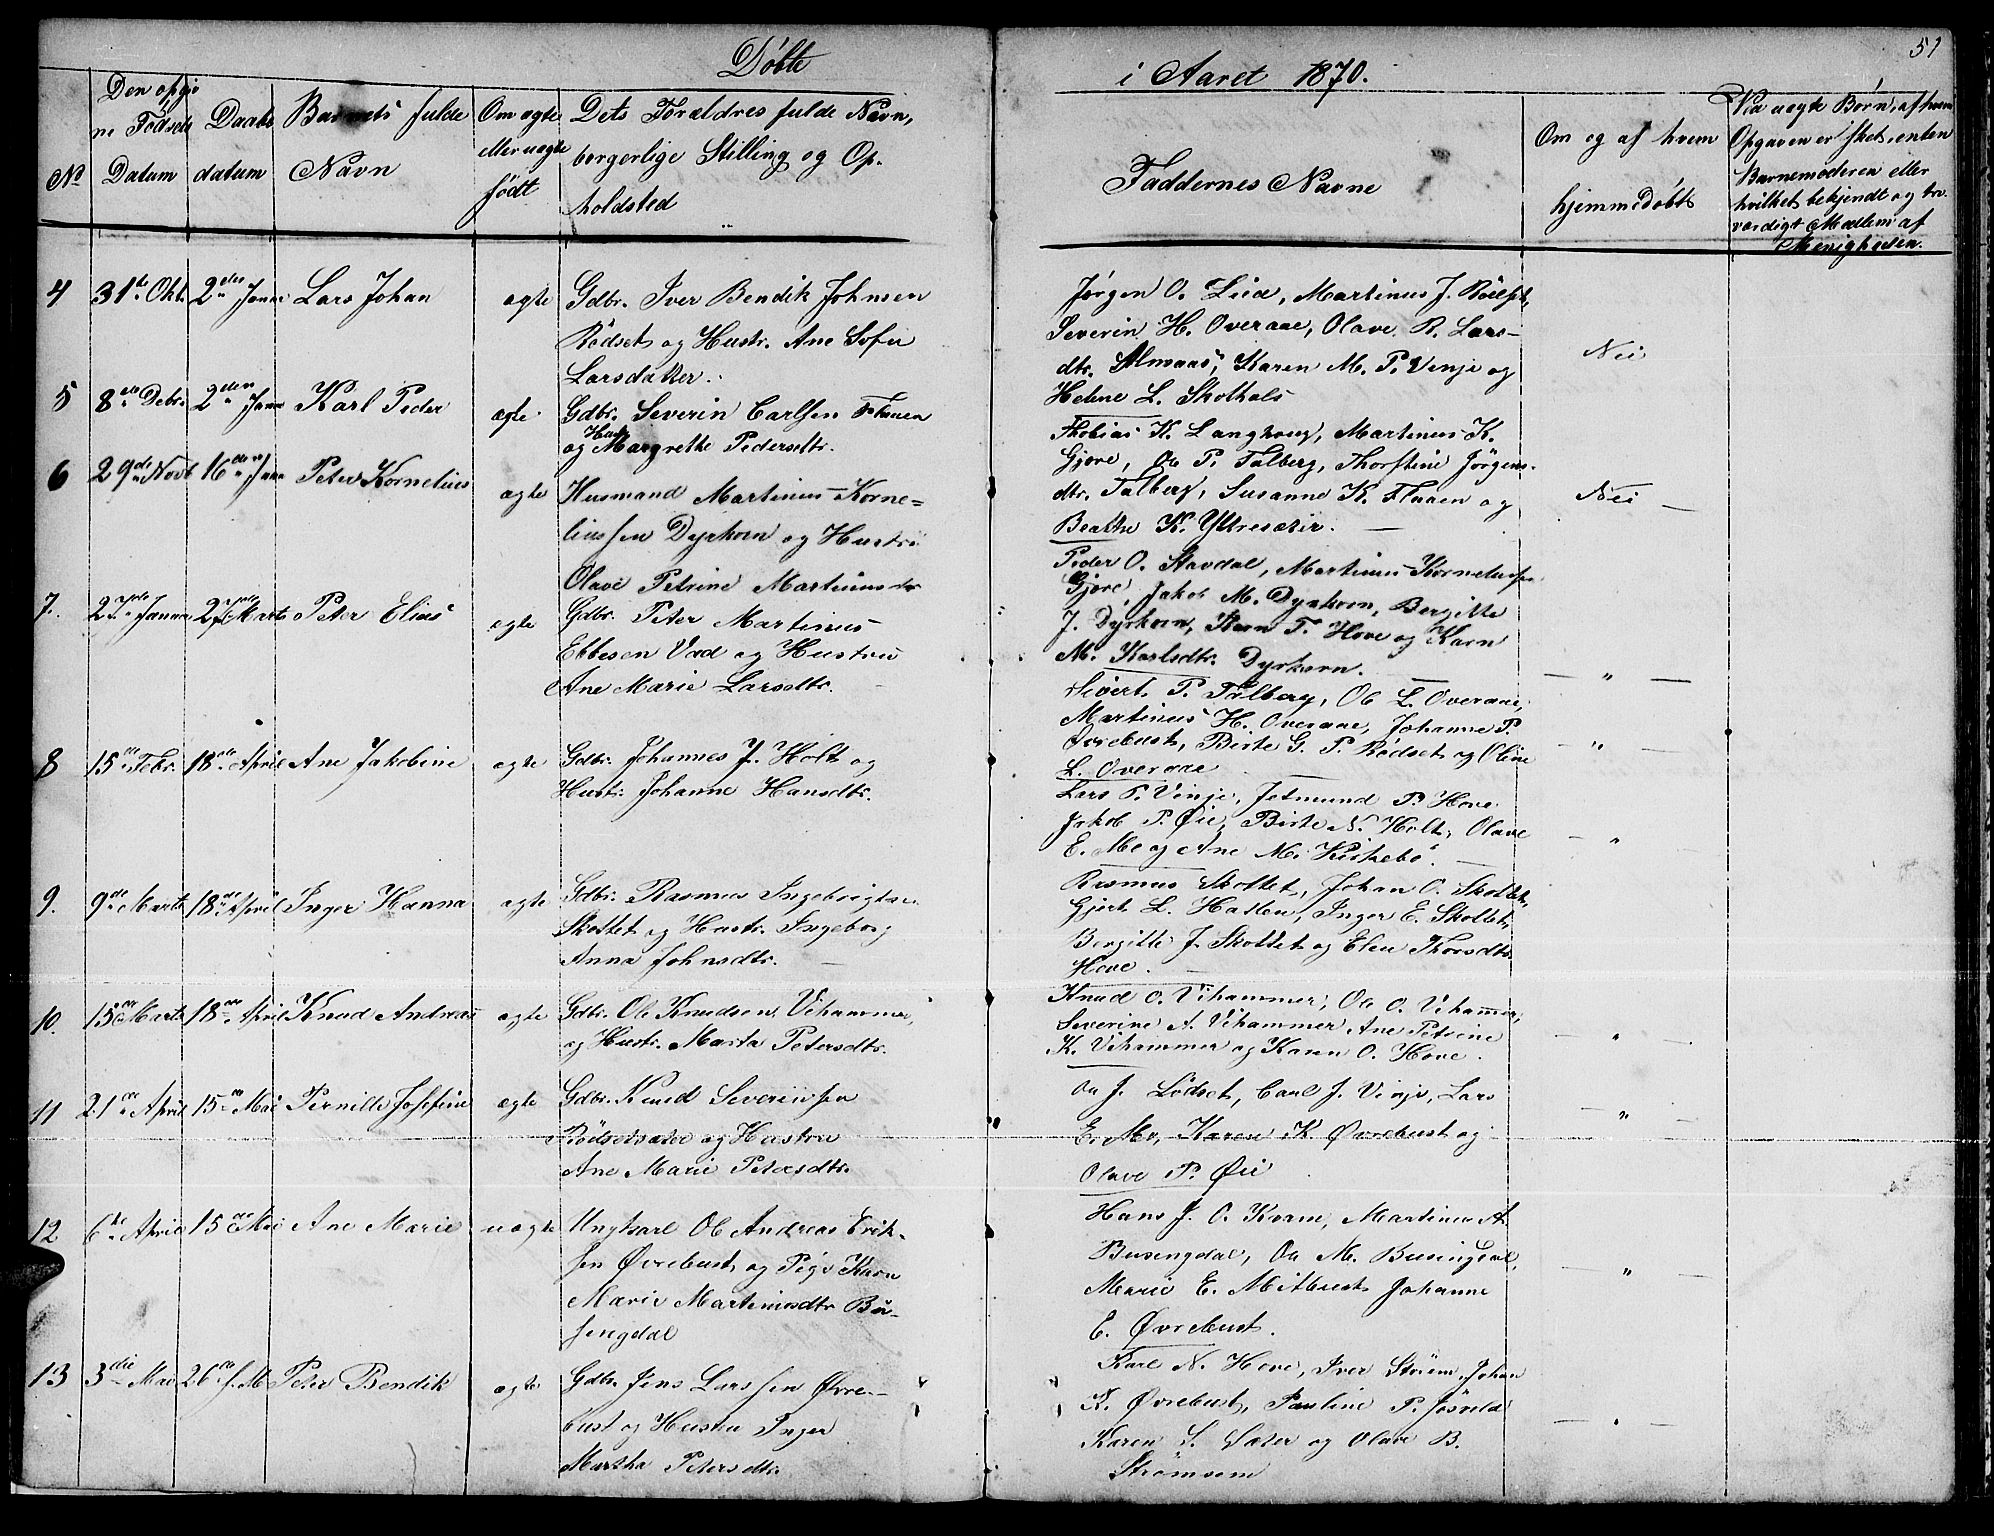 Døbte
i Aaret 1870.
51
No
Den opgiv
ne Fødsels
Datum
Daabs
datum
Barnets fulde
Navn
Om ægte
eller uægte
født
Dets Forældres fulde Navn,
borgerlige Stilling og Op-
holdsted
Faddernes Navne
Om og af hvem
hjemmedøbt
Ved uægte Børn, af hvem
Opgaven er sket, enten
Barnemoderen eller
hvilket bekjendt og tro
værdigt Medlem af
Menigheden.
4
31te Okt.
2den Janua
Lars Johan
ægte
Gdbr. Iver Bendik Johnsen
Rødset og Hustr. Ane Sofie
Larsdatter.
Jørgen O. Lied, Martinus J.
Severin H. Overaae, Olave R. Lars-
dtr. Almaas, Karen M. P. Venje og
Helene L. Skothals
Nei
5
8de Debr.
2den Janua
Karl Peder
ægte
Gdbr. Severin Carlsen Flaaen
og Hustr. Margrethe Pedersdtr.
Thobias K. Langhoug, Martinus K.
Gjøre, Ole P. Talberg, Thorstine Jørgens-
dtr. Talberg, Susanne K. Flaaen og
Beathe K. Yttresæter.
Nei
6
29de Novb
16den Janua
Peter Kornelius
ægte
Husmand Martinus Korne=
liussen Dyrkorn og Hustru
Olave Petrine Martinusdtr
Peder O. Stavdal, Martinus Korneliussen
Gjøre, Jakob M. Dyrkorn, Bergitte
J. Dyrkorn, Karn T. Hove og Karn
M. Karlsdtr. Dyrkorn.
"
7.
27de Janua
27de Marts
Peter Elias
ægte
Gdbr. Peter Martinus
Ebbesen Vad og Hustru
Ane Marie Larsdtr.
Sivert P. Talberg, Ole L. Overaae,
Martinus H. Overaae, Johanne P.
Øvrebust, Birte G. P. Rødset og Oline
L. Overaae
"
8
15de Febr.
18de April
Ane Jakobine
ægte
Gdbr. Johannes J. Holt og
Hustr. Johanne Hansdtr.
Lars P. Vinje, Jetmund P. Hove
Jakob P. Øie, Birte N. Holt, Olave
E. Mo og Ane M. Kirkebø.
"
9.
9de Marts
18de April
Inger Hanna
ægte
Gdbr. Rasmus Ingebrigtsen
Skottet og Hustr. Ingeborg
Anna Johnsdtr.
Rasmus Skottet, Johan O. Skottet,
Gjert L. Hatlen, Inger E. Skottet,
Bergitte J. Skottet og Elen Thorsdtr.
Hove.
10.
15de Marts
18de April
Knud Andreas
ægte
Gdbr. Ole Knudsen Vihammer
og Hustr. Marta Petersdtr.
Knud O. Vihammer, Ole O. Vihammer,
Severine A. Vihammer Ane Petrine
K. Vihammer og Karen O. Hove.
"
11
21de April
15de Mai
Pernille Josefine
ægte
Gdbr. Knud Severinsen
Rødsetsæter og Hustru
Ane Marie Petersdtr.
Ole J. Lødset, Carl J. Vinje, Lars
E. Mo, Karen K. Øvrebust og
Olave P. Øie
"
12
6te April
15de Mai
Ane Marie
uægte
Ungkarl Ole Andreas Erik-
sen Øvrebust og Pige Karn
Marie Martinusdtr. Bu-
sengdal
Hans J. O. Kvam, Martinus A.
Busengdal, Ole M. Busingdal,
Marie E. Mitbust Johanne
E. Øvrebust.
"
13
3die Mai
26de f.M
Peter Bendik
ægte
Gdbr. Jens Larssen Øvre-
bust og Hustru Inger
Martha Petersdtr.
Karl N. Hove, Iver Strøm, Johan
K. Øvrebust, Pauline P.
Karen S. Sæter og Olave B.
Strømsem
"